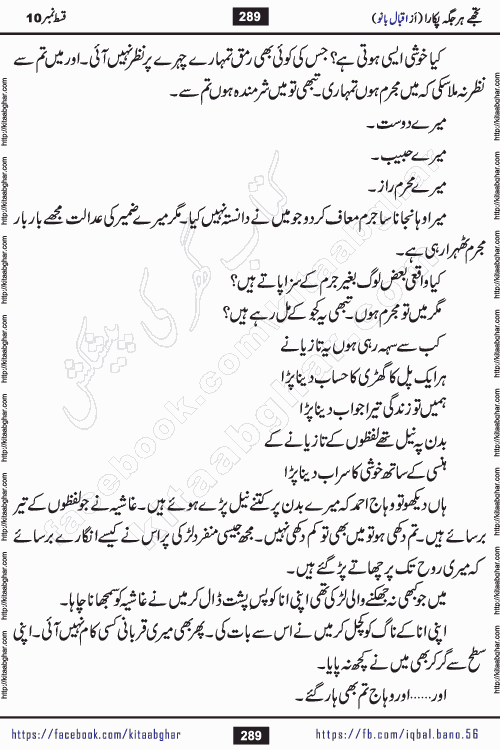 تجھے ہر جگہ پکارا (از اقبال بانو)
289
قسط نمبر 10
کیا خوشی ایسی ہوتی ہے؟ جس کی کوئی بھی رمق تمہارے چہرے پر نظر نہیں آئی۔ اور میں تم سے
نظر نہ ملا سکی کہ میں مجرم ہوں تمہاری۔ تبھی تو میں شرمندہ ہوں تم سے۔
میرے دوست۔
میرے حبیب۔
میرے محرم راز۔
میرا وہ انجانا سا جرم معاف کر دو جو میں نے دانستہ نہیں کیا۔ مگر میرے ضمیر کی عدالت مجھے بار بار
مجرم ٹھہرا رہی ہے۔
کیا واقعی بعض لوگ بغیر جرم کے سزا پاتے ہیں؟
مگر میں تو مجرم ہوں۔ تبھی یہ کچوکے مل رہے ہیں؟
کب سے سہہ رہی ہوں یہ تازیانے
ہر ایک پل کا گھڑی کا حساب دینا پڑا
ہمیں تو زندگی تیرا جواب دینا پڑا
بدن پہ نیل تھے لفظوں کے تازیانے کے
ہنسی کے ساتھ خوشی کا سراب دینا پڑا
ہاں دیکھو تو وہاج احمد کہ میرے بدن پر کتنے نیل پڑے ہوئے ہیں۔ غاشیہ نے جو لفظوں کے تیر
برسائے ہیں۔ تم دکھی ہو تو میں بھی تو کم دکھی نہیں۔ مجھ جیسی منفرد لڑکی پر اس نے کیسے انگارے برسائے
کہ میری روح تک پر چھاتے پڑ گئے ہیں۔
میں جو کبھی نہ جھکنے والی لڑکی تھی اپنی انا کو پس پشت ڈال کر میں نے غاشیہ کو سمجھانا چاہا۔
اپنی انا کے ناگ کو کچل کر میں نے اس سے بات کی۔ پھر بھی میری قربانی کسی کام نہیں آئی۔ اپنی
سطح سے گر کر بھی میں نے کچھ نہ پایا۔
اور......اور وہاج تم بھی ہار گئے۔
کتاب گھر کی پیشکش
facebook.com/kitaabghar
kitaabghar.com
http://kitaabghar.com http://kitaabghar.com http://kitaabghar.com http://kitaabghar.com http://kitaabghar.com http://kitaabghar.com http://kitaabghar.com http://kitaabghar.com
http://kitaabghar.com http://kitaabghar.com http://kitaabghar.com http://kitaabghar.com http://kitaabghar.com http://kitaabghar.com http://kitaabghar.com http://kitaabghar.com
https://facebook.com/kitaabghar
289
https://fb.com/iqbal.bano.56